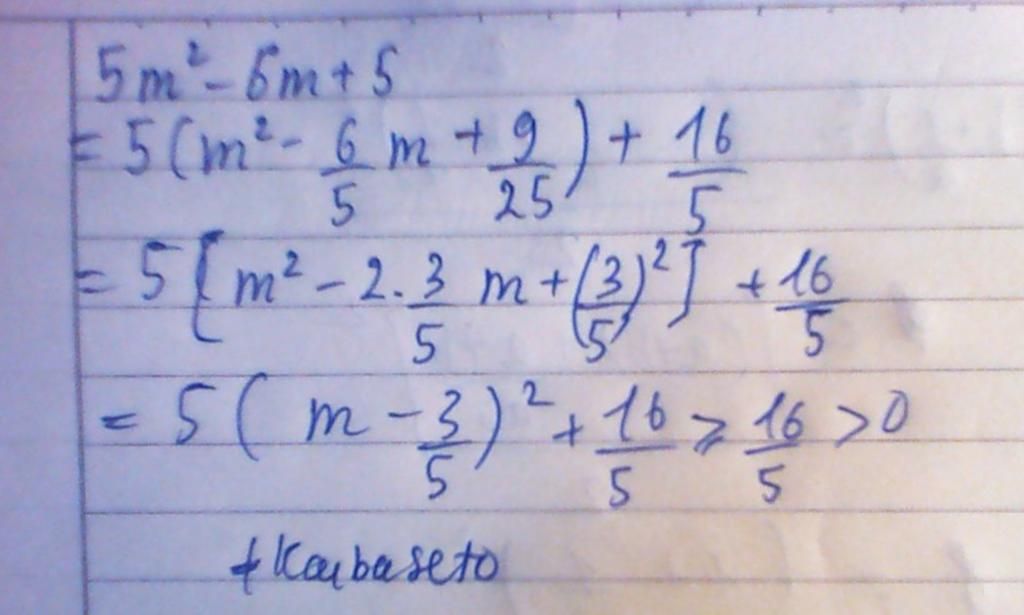 5m² - 6m + 5
= 5(m² - 6/5 m + 9/25) + 16/5
= 5[m² - 2.3/5 m + (3/5)²] + 16/5
= 5( m - 3/5)² + 16/5 ⩾ 16/5 > 0